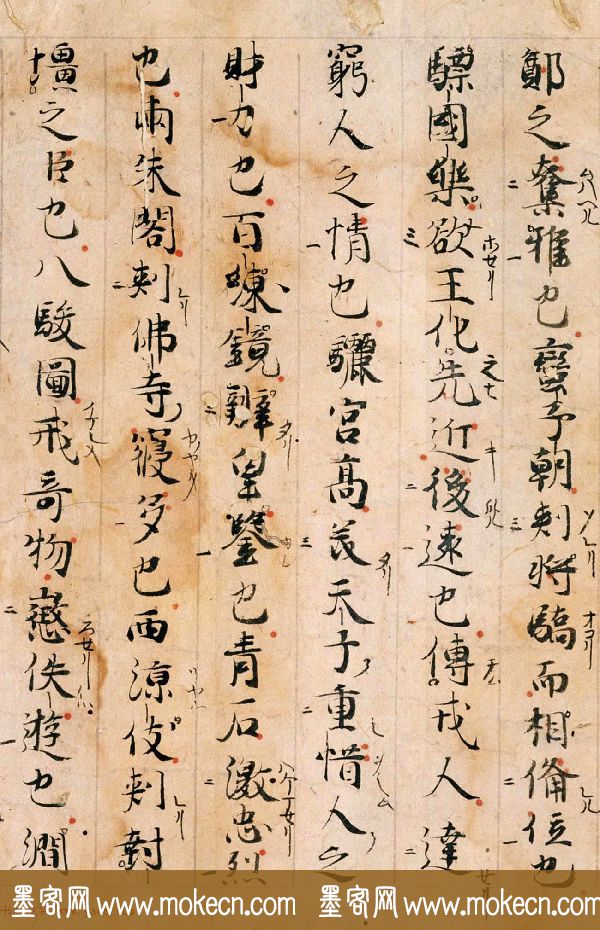 鄭之奪雅也蠻子朝刺将驕而相備位也
驃國樂欲王化先近後遠也傳戎人達
窮人之情也驪宮高美天子重惜人之
財力也百練鏡辯皇鑒也青石激忠烈
也兩朱閣刺佛寺寖多也西涼伎刺封
壃之臣也八駿圖戒奇物懲佚遊也澗
墨客网 www.mokecn.com 墨客网 www.mokecn.com